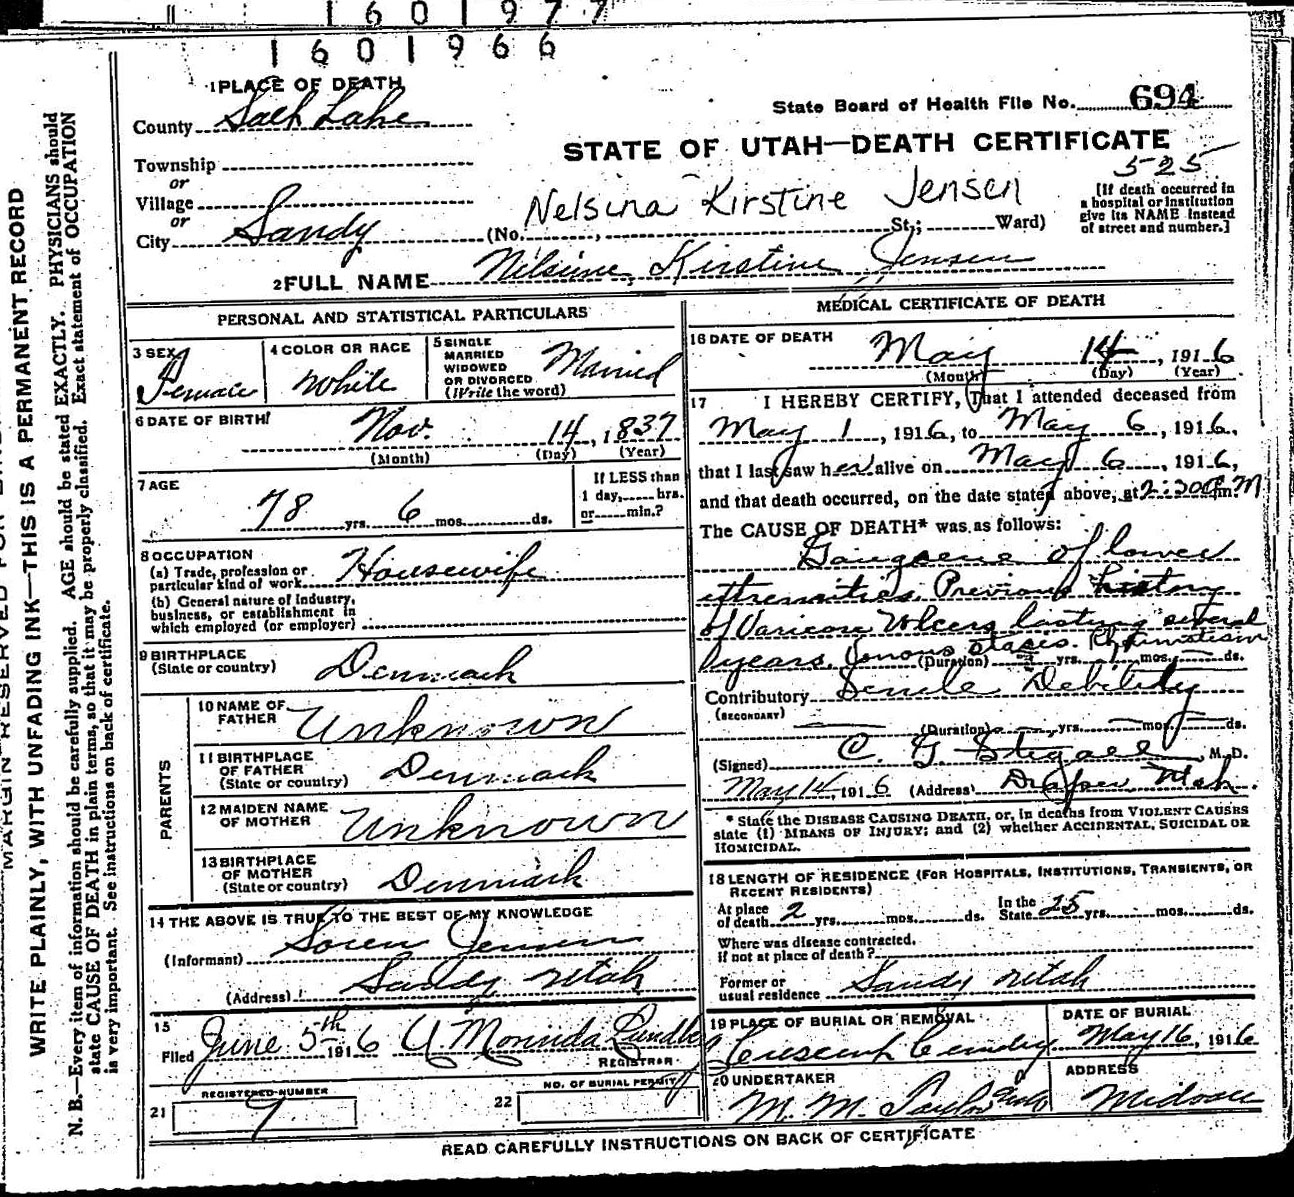 1 6 0 1 9 7 7
1 6 0 1 9 6 6
1 PLACE OF DEATH
County Salt Lake
State Board of Health File No. 694
STATE OF UTAH—DEATH CERTIFICATE
525
Township
or
Village
or
City Sandy
Nelsina Kirstine Jensen
(No. , St.; Ward)
[If death occurred in
a hospital or institution
give its NAME instead
of street and number.]
2 FULL NAME Nilsine Kirstine Jensen
PERSONAL AND STATISTICAL PARTICULARS
3 SEX Female
4 COLOR OR RACE White
5 SINGLE
MARRIED
WIDOWED
OR DIVORCED
(Write the word)
Married
6 DATE OF BIRTH Nov. 14, 1837
(Month) (Day) (Year)
7 AGE
78 yrs. 6 mos. ds.
If LESS than
1 day, hrs.
or min.?
8 OCCUPATION
(a) Trade, profession or
particular kind of work Housewife
(b) General nature of Industry,
business, or establishment in
which employed (or employer)
9 BIRTHPLACE
(State or country) Denmark
PARENTS
10 NAME OF
FATHER Unknown
11 BIRTHPLACE
OF FATHER
(State or country) Denmark
12 MAIDEN NAME
OF MOTHER Unknown
13 BIRTHPLACE
OF MOTHER
(State or country) Denmark
14 THE ABOVE IS TRUE TO THE BEST OF MY KNOWLEDGE
(Informant) Soren Jensen
(Address) Sandy Utah
15
Filed June 5th 1916
REGISTRAR
REGISTERED NUMBER
21 7
NO. OF BURIAL PERMIT
22
MEDICAL CERTIFICATE OF DEATH
16 DATE OF DEATH
May 14, 1916
(Month) (Day) (Year)
17 I HEREBY CERTIFY, That I attended deceased from
May 1, 1916, to May 6, 1916,
that I last saw her alive on May 6, 1916,
and that death occurred, on the date stated above, at 2:30 m.
The CAUSE OF DEATH* was as follows:
Gangrene of lower
extremities. Previous history
of Varicose Ulcers lasting several
years. Venous stases. Rheumatism
(Duration) yrs. mos. ds.
Contributory Senile Debility
(SECONDARY)
(Duration) yrs. mos. ds.
(Signed) C. G. Stegall, M. D.
May 14, 1916 (Address) Draper Utah.
* State the DISEASE CAUSING DEATH, or, in deaths from VIOLENT CAUSES
state (1) MEANS OF INJURY; and (2) whether ACCIDENTAL, SUICIDAL OR
HOMICIDAL.
18 LENGTH OF RESIDENCE (FOR HOSPITALS, INSTITUTIONS, TRANSIENTS, OR
RECENT RESIDENTS)
At place
of death 2 yrs. mos. ds.
In the
State 25 yrs. mos. ds.
Where was disease contracted,
if not at place of death?
Former or
usual residence Sandy Utah
19 PLACE OF BURIAL OR REMOVAL
Crescent Cemetery
DATE OF BURIAL
May 16, 1916
20 UNDERTAKER
M. M.
ADDRESS
Midvale
READ CAREFULLY INSTRUCTIONS ON BACK OF CERTIFICATE
WRITE PLAINLY, WITH UNFADING INK—THIS IS A PERMANENT RECORD
N. B.—Every item of information should be carefully supplied. AGE should be stated EXACTLY. PHYSICIANS should
state CAUSE OF DEATH in plain terms, so that it may be properly classified. Exact statement of OCCUPATION
is very important. See instructions on back of certificate.